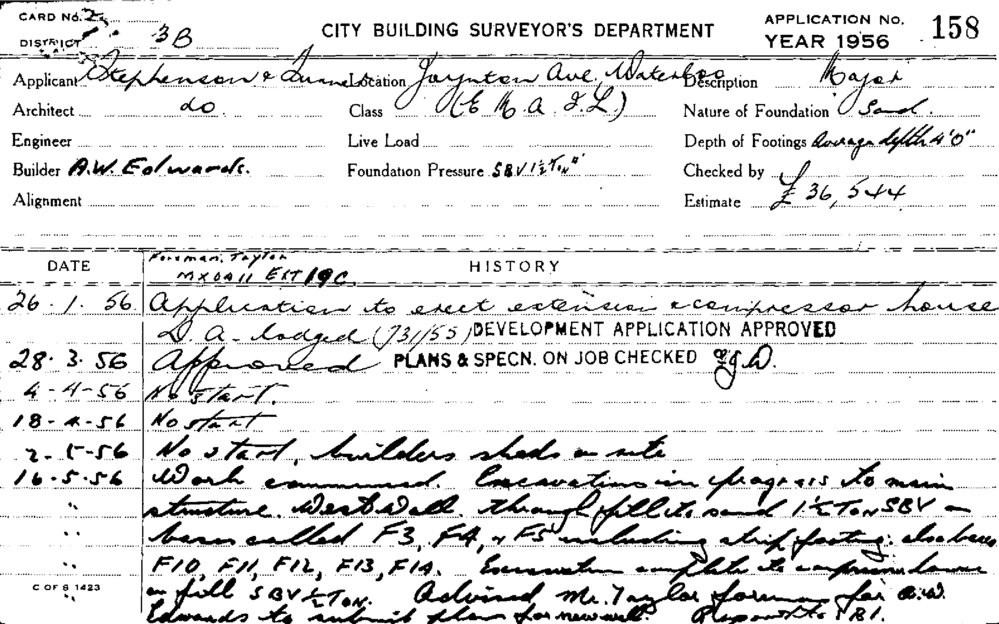 CARD No. 2
DISTRICT 3B
CITY BUILDING SURVEYOR'S DEPARTMENT
APPLICATION No. 158
YEAR 1956
Applicant Stephenson & Turner Location Joynton Ave. Waterloo Description Major
Architect do. Class (E M A I L) Nature of Foundation Sand
Engineer Live Load Depth of Footings Average depth 4'0"
Builder A.W. Edwards. Foundation Pressure SBV 1½ Ton Checked by
Alignment Estimate £ 36,544
Foreman. Taylor
DATE MX0411 EXT 19C. HISTORY
26. 1. 56. Application to erect extension & compressor house
D. A. lodged (731/55) DEVELOPMENT APPLICATION APPROVED
28. 3. 56 Approved PLANS & SPECN. ON JOB CHECKED
4-4-56 No start.
18-4-56 No start
2-5-56 No start, builders sheds on site
16.5.56 Work commenced. Excavation in progress to main
" structure. West Wall. through fill to sand 1½ Ton SBV on
" bases called F3, F4, & F5 including strip footing. also bases
" F10, F11, F12, F13, F14. Excavation complete to compressor house
C OF S 1423
" on fill SBV ½ Ton. Advised Mr. Taylor foreman for A.W.
Edwards to submit plans for new wall. Report to SBI.